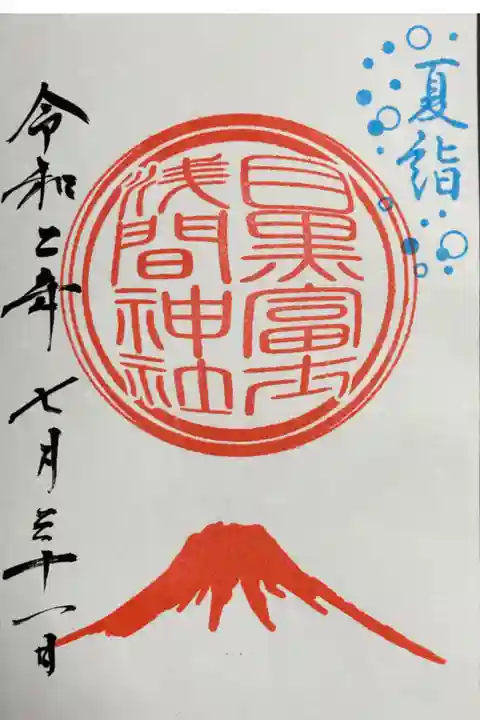 夏詣
目黒富士
浅間神社
令和二年七月三十一日